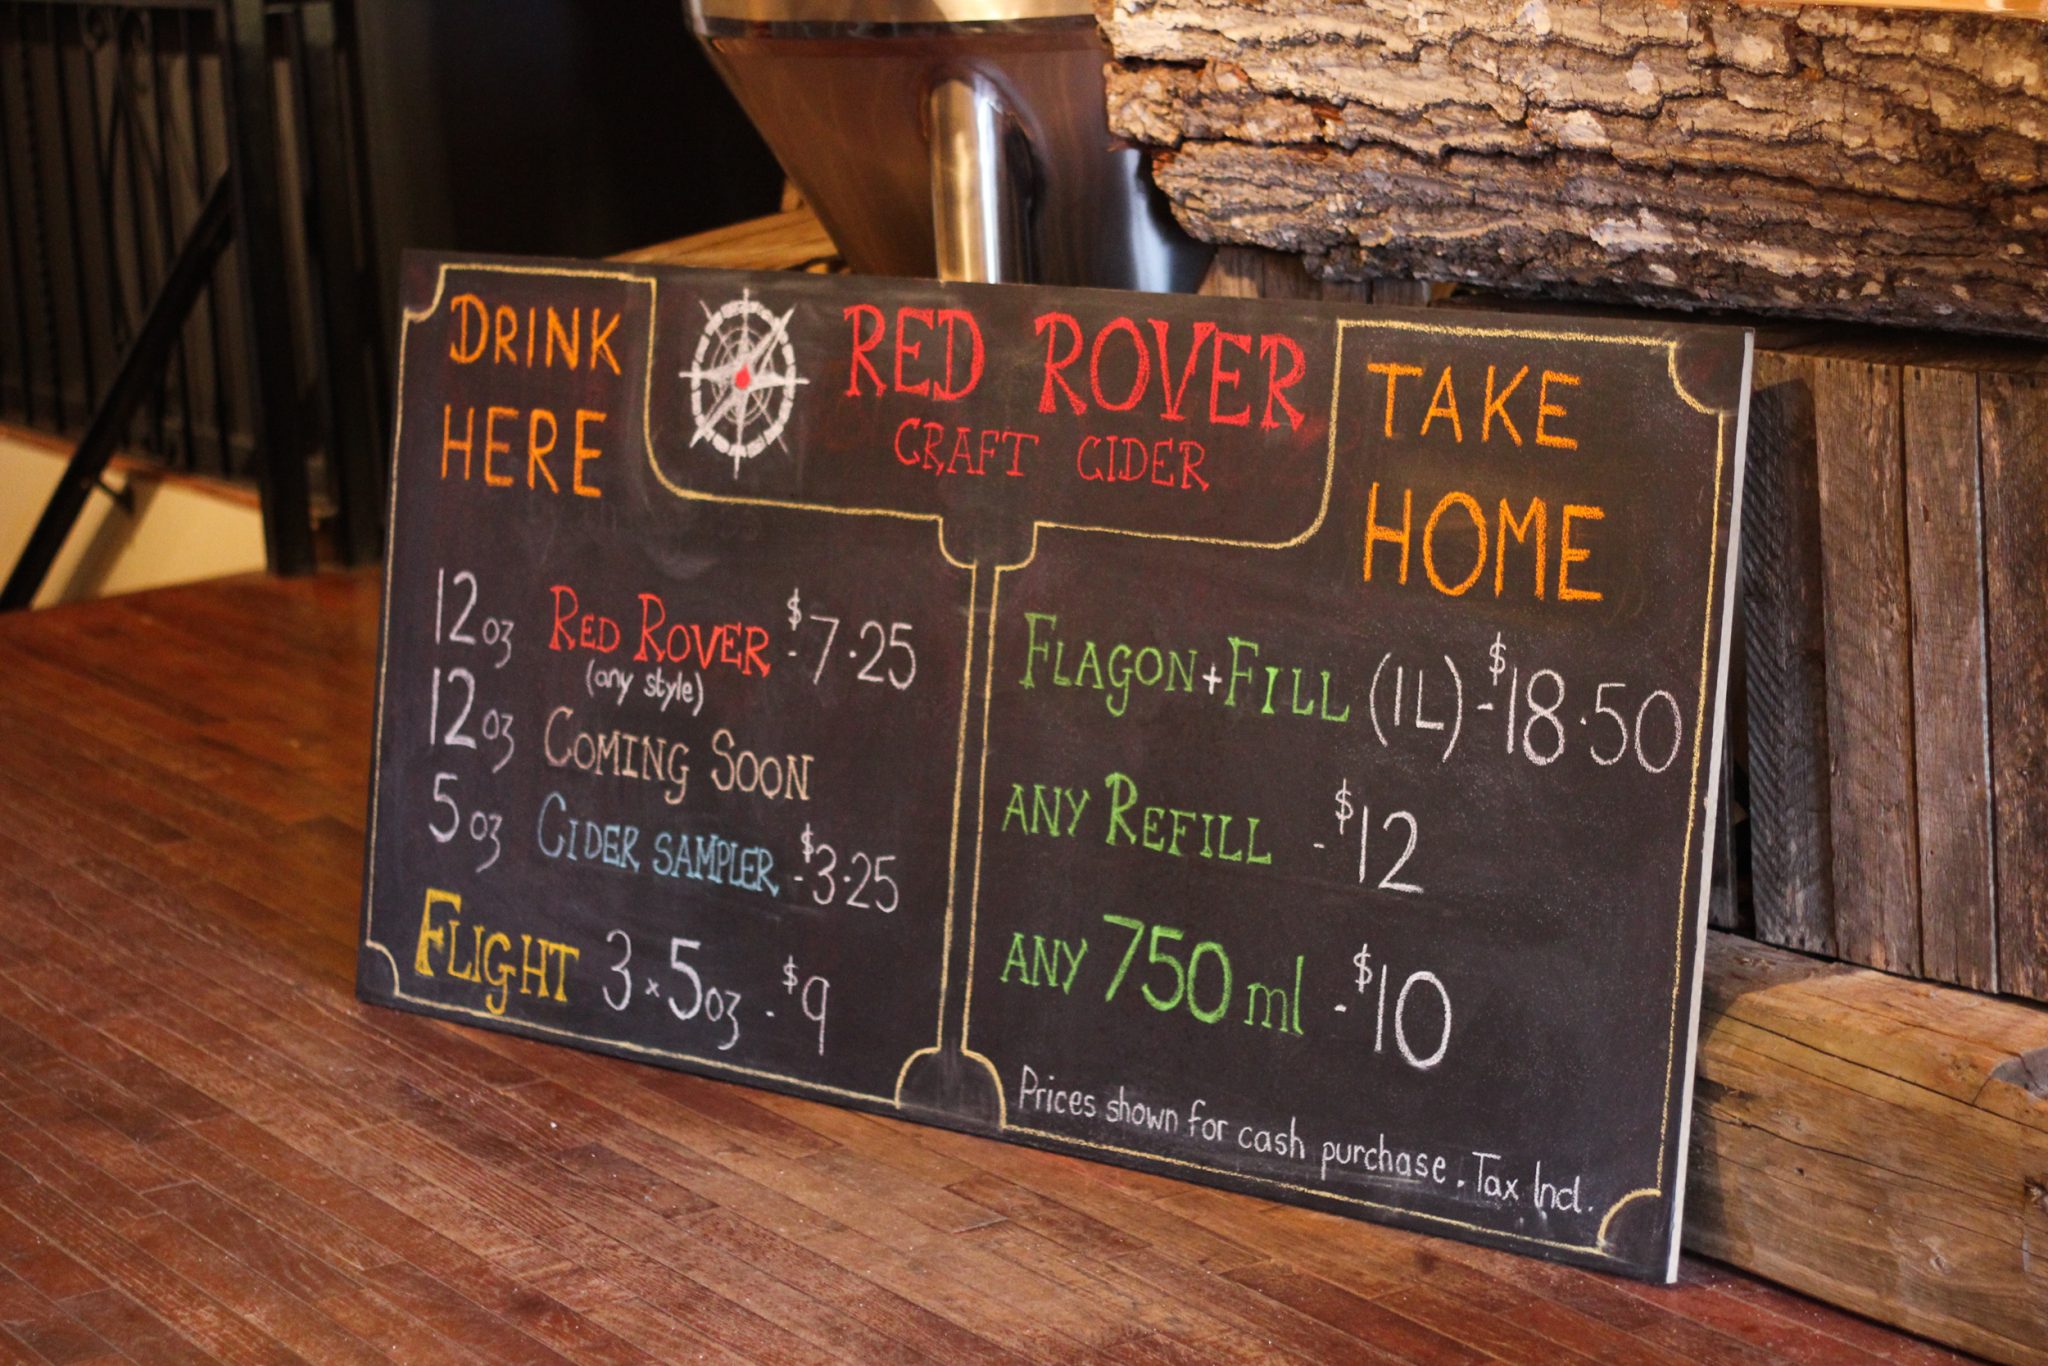 DRINK
HERE
RED ROVER
CRAFT CIDER
TAKE
HOME
12oz RED ROVER - $7.25
(any style)
12oz COMING SOON
5oz CIDER SAMPLER - $3.25
FLIGHT 3x5oz - $9
FLAGON + FILL (1L) - $18.50
ANY REFILL - $12
ANY 750 ml - $10
Prices shown for cash purchase. Tax Incl.